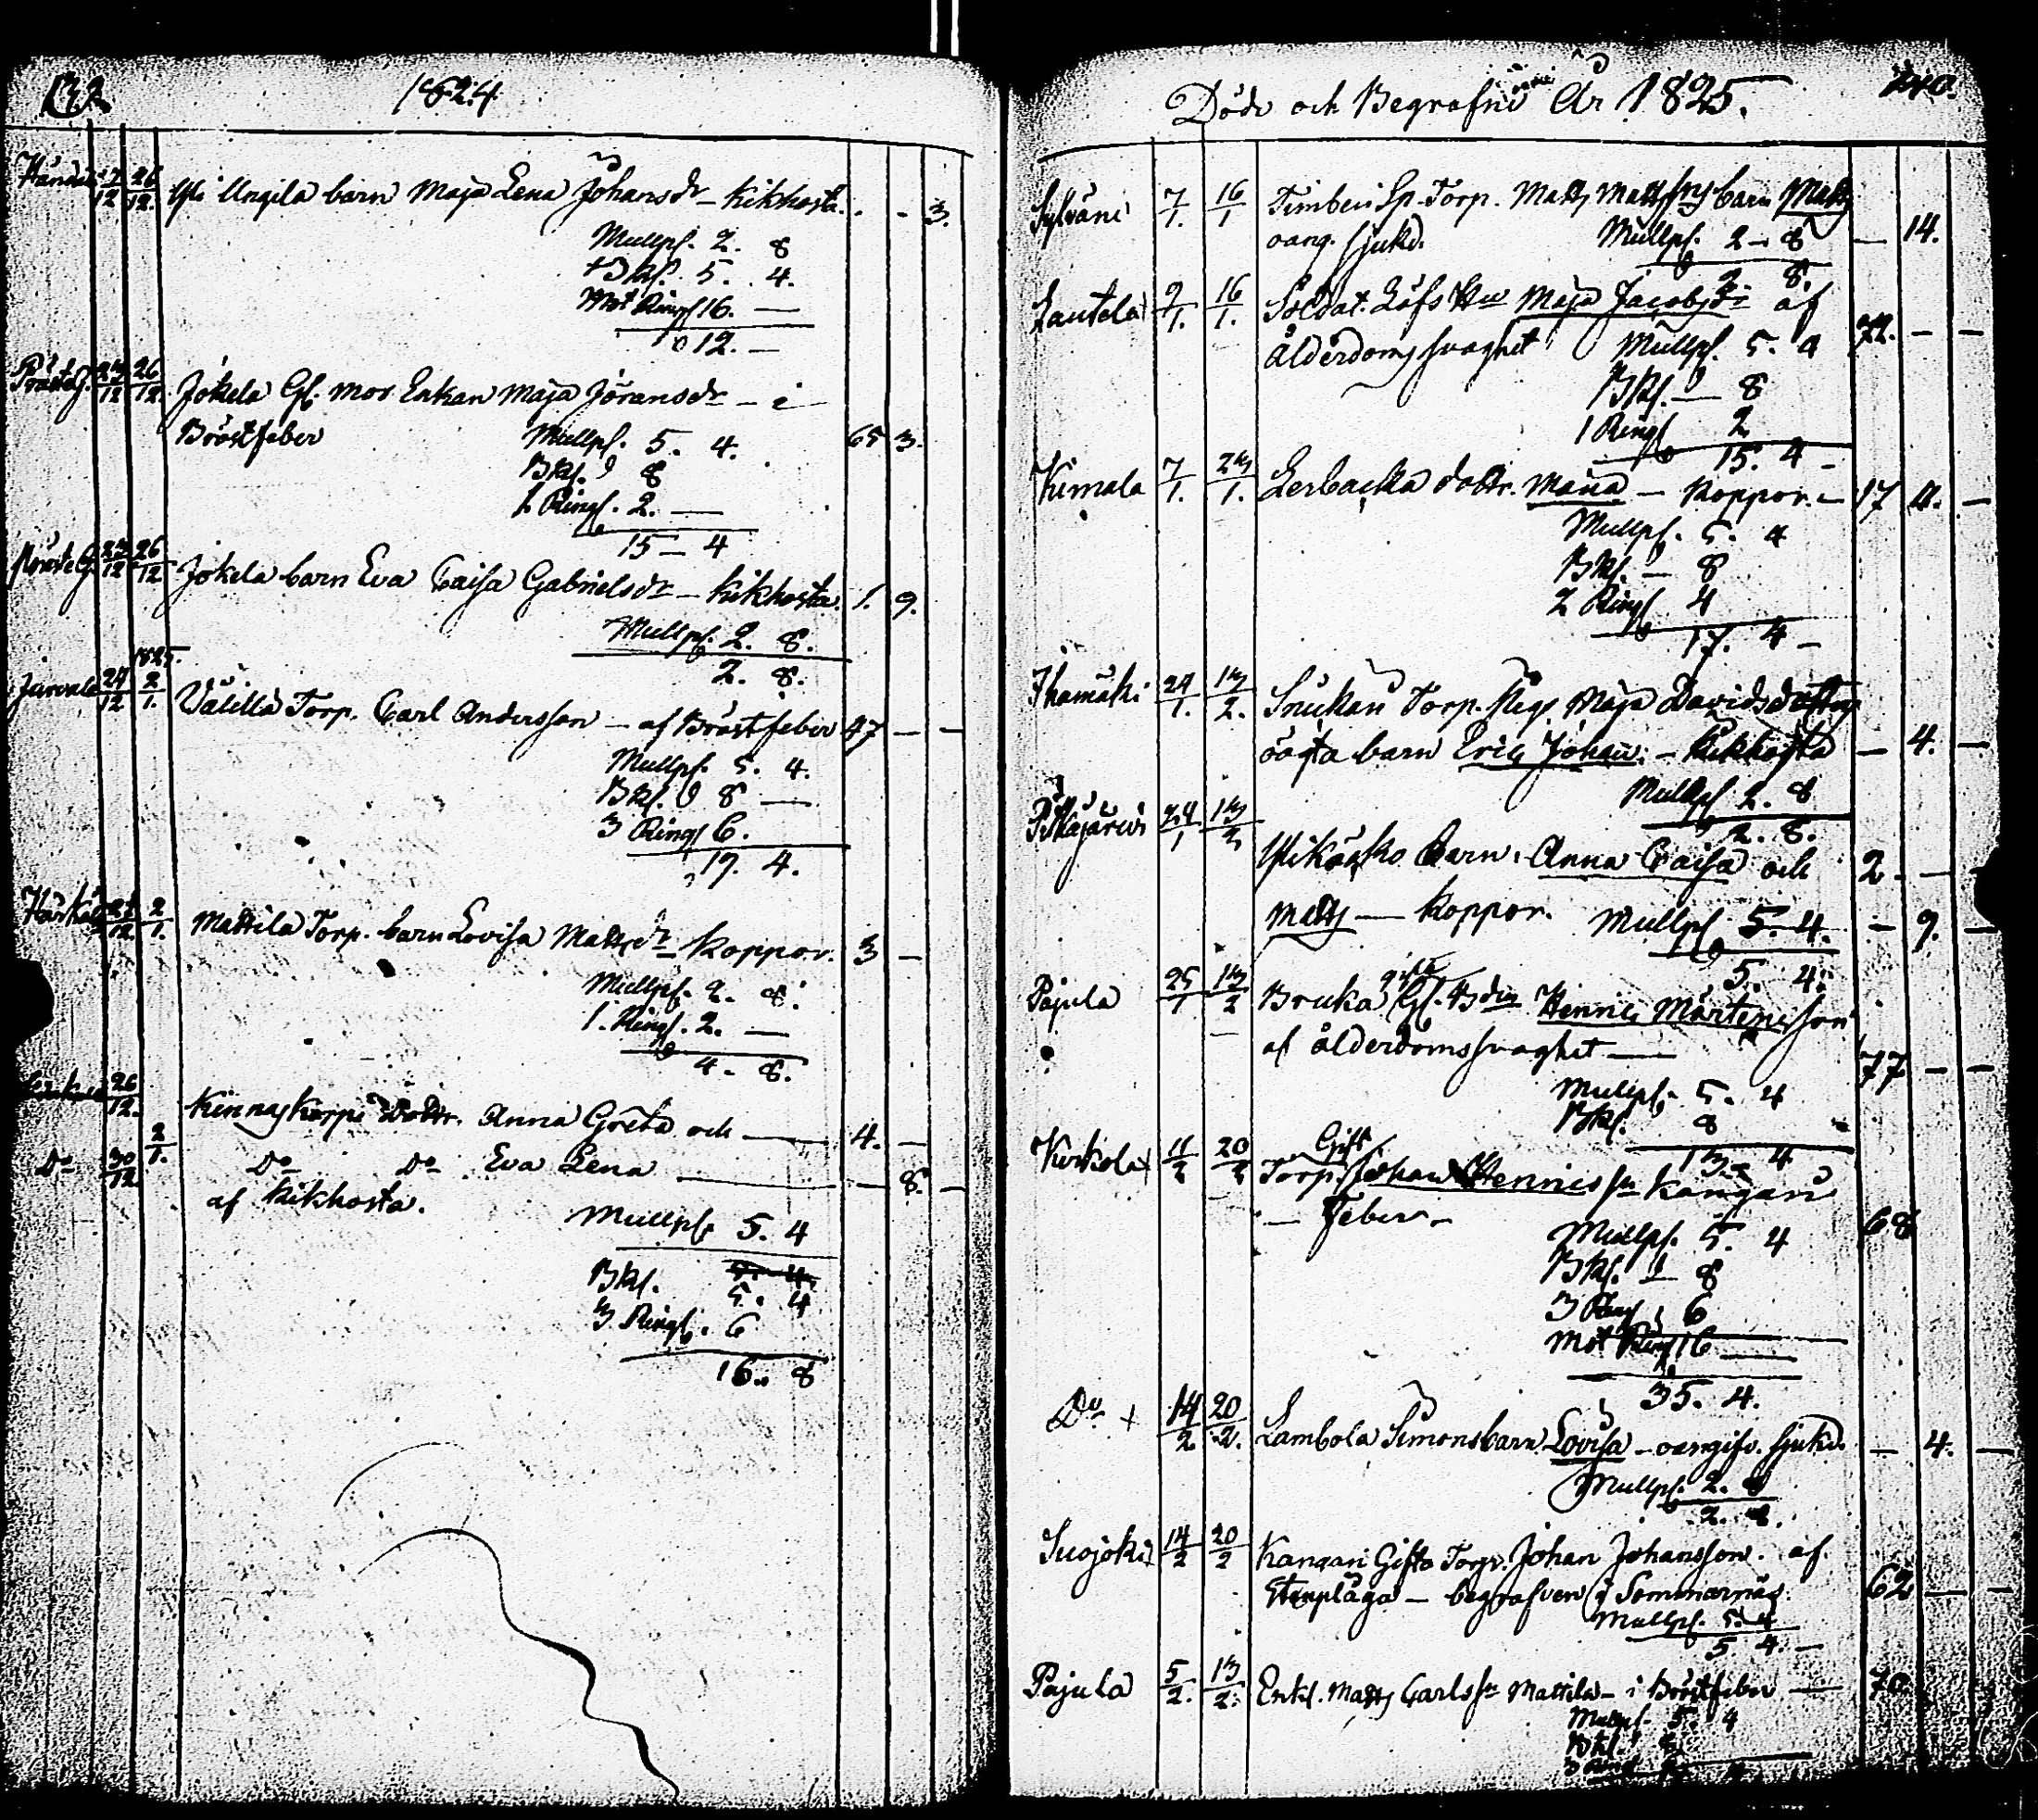 1824
17/12 26/12. Yli Ungila barn Maja Lena Johans dr – Kikhosta. . - 3.
Mullpf. 2. 8
Bkl. 5. 4.
Mot Ringf 16. —
12. —
23/12 26/12. Jokela Gf. mor Enkan Maja Jöransdr – i
Bröstfeber Mullpf. 5. 4. 65 3.
Bkl. 8
1 Ringf. 2. —
15 – 4
23/12 26/12. Jokela barn Eva Caisa Gabrielsdr – Kikhosta. 1. 9.
Mullpf. 2. 8.
2. 8.
1825.
24/12 2/1. Välilä Torp. Carl Andersson – af Bröstfeber 47 — —
Mullpf. 5. 4.
Bkl. 8 —
3 Ringf 6.
19. 4.
2/1. Mattila Torp. barn Lovisa Matts dr Koppor. 3 —
Mullpf. 2. 8.
1. Ringf. 2. —
4. 8.
26/12. Kinnaskorpi Dottr. Anna Greta och — 4. —
2/1.
Do 30/12 Do Do Eva Lena — — 8. —
af Kikhosta.
Mullpf. 5. 4
Bkl. 5. 4
3 Ringf. 6
16. 8
Döde och Begrafne År 1825. 240.
Sylvänä 7/1. 16/1 Timberi Sp. Torp. Matts Mattssns barn Matts
oang. sjukd. Mullpf. 2 – 8 — 14.
2 8.
Lautela 9/1. 16/1. Soldat. Löfs Hu Maja Jacobsdr af
ålderdomssvaghet Mullpf. 5. 4 72. — —
Bkl. — 8
1 Ringf 2
15. 4 –
Kimala 7/1. 23/1. Lerbacka dottr. Maria – Koppor. – 17 4. —
Mullpf. 5. 4
Bkl. — 8
2 Ringf 4
17. 4 –
Ihamäki 24/1. 13/2. Snickari Torp. Pig. Maja Davidsdotters
oägta barn Eric Johan. – Kikhosta — 4. —
Mullpf. 2. 8
2. 8.
Pitkäjärvi 24/1 13/2 Ylikäsko Barn. Anna Caisa och 2 — —
Matts — Koppor. Mullpf. 5. 4. — 9. —
5. 4.
Pajula 25/1 13/2 Bruka gifte Gf. Bdn Hennric Mårtensson
af ålderdomssvaghet — 77 — —
Mullpf. 5. 4
Bkl. 8
13. 4
Kirkola 11/2 20/2 Gift Torp. Johan Hennrics sn Kangari
— Feber – 68
Mullpf. 5. 4
Bkl. 8
3 Ringf 6
Mot Ringf 16 —
35. 4.
Do + 14/2 20/2. Lambola Simons barn Lovisa – oangifv. sjukd. — 4. —
Mullpf. 2. 8
2. 8.
Suojoki 14/2 20/2 Kangari Gifte Torp. Johan Johansson. af
Stenplåga – begrafven i Sommarnäs. 62 — —
Mullpf. 5. 4
5 4. –
Pajula 5/2. 13/2. Enkl. Matts Carls sn Mattila – i Bröstfeber — 70
Mullpf. 5. 4
Bkl. 8